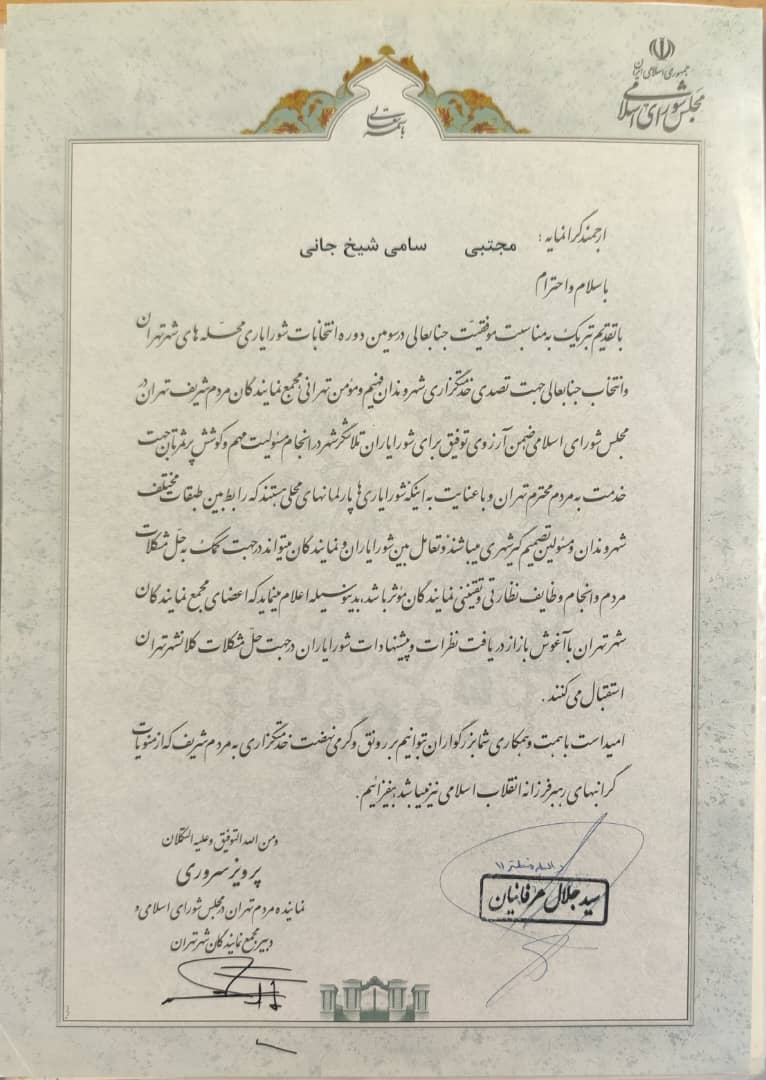 جمهوری اسلامی ایران
مجلس شورای اسلامی
باسمه تعالی
ارجمند گرانمایه ؛ مجتبی سامی شیخ جانی
با سلام و احترام
با تقدیم تبریک به مناسبت موفقیت جنابعالی در سومین دوره انتخابات شورایاری محله های شهر تهران
و انتخاب جنابعالی جهت تصدی خدمتگزاری شهروندان فهیم و مومن تهرانی مجمع نمایندگان مردم شریف تهران در
مجلس شورای اسلامی ضمن آرزوی توفیق برای شورایاران تلاشگر شهر در انجام مسئولیت مهم و کوشش پرثمرتان جهت
خدمت به مردم محترم تهران و با عنایت به اینکه شورایاری ها پارلمانهای محلی هستند که رابط بین طبقات مختلف
شهروندان و مسئولین تصمیم گیر شهری میباشند و تعامل بین شورایاران و نمایندگان میتواند در جهت کمک به حل مشکلات
مردم و انجام وظایف نظارتی و تقنینی نمایندگان مؤثر باشد، بدینوسیله اعلام مینماید که اعضای مجمع نمایندگان
شهر تهران با آغوش باز از دریافت نظرات و پیشنهادات شورایاران در جهت حل مشکلات کلانشهر تهران
استقبال می کنند .
امید است با همت و همکاری شما بزرگواران بتوانیم بر رونق و گرمی نهضت خدمتگزاری به مردم شریف که از منویات
گرانبهای رهبر فرزانه انقلاب اسلامی نیز میباشد بیفزائیم .
و من الله التوفیق و علیه التکلان
پرویز سروری
نماینده مردم تهران در مجلس شورای اسلامی و
دبیر مجمع نمایندگان شهر تهران
سید جلال عرفانیان